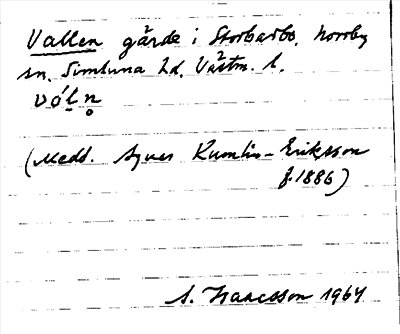 Vallen gärde i Storbarbo, Norrby
sn. Simtuna hd, Västm. l.
vóḷn̥
(Medd. Agnes Kumlin-Eriksson
f. 1886)
S. Isaacsson 1964